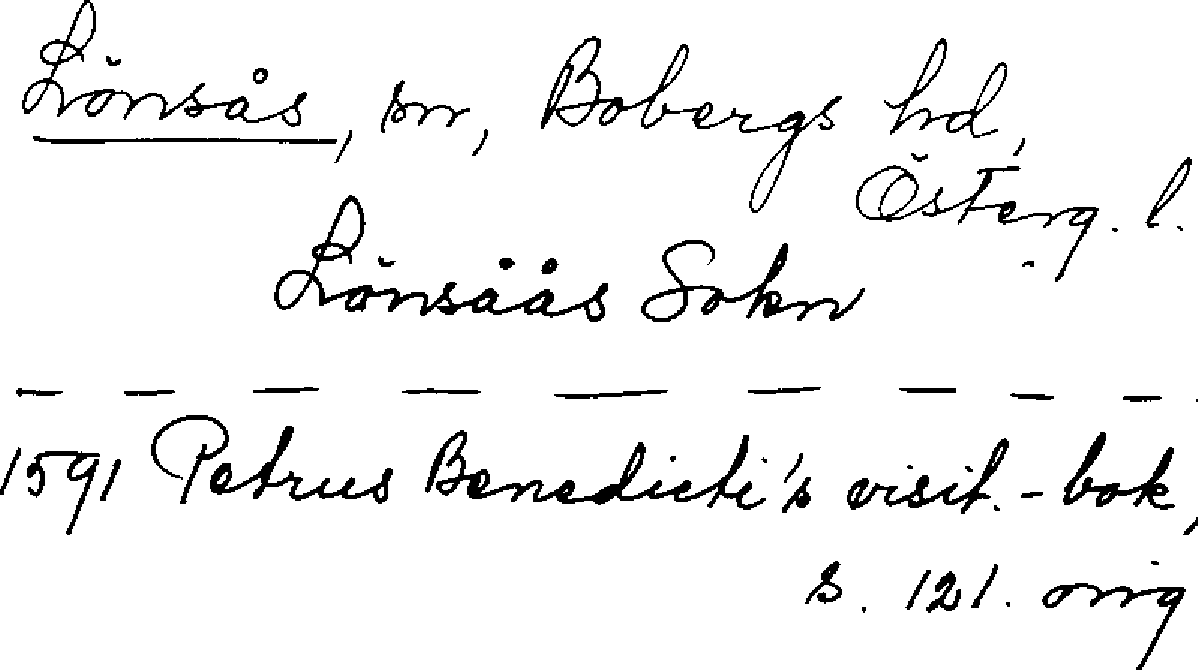 Lönsås, sn, Bobergs hd,
Österg. l.
Lönsåås Sokn
— — — — — — — — —
1591 Petrus Benedicti's visit.-bok,
s. 121. orig